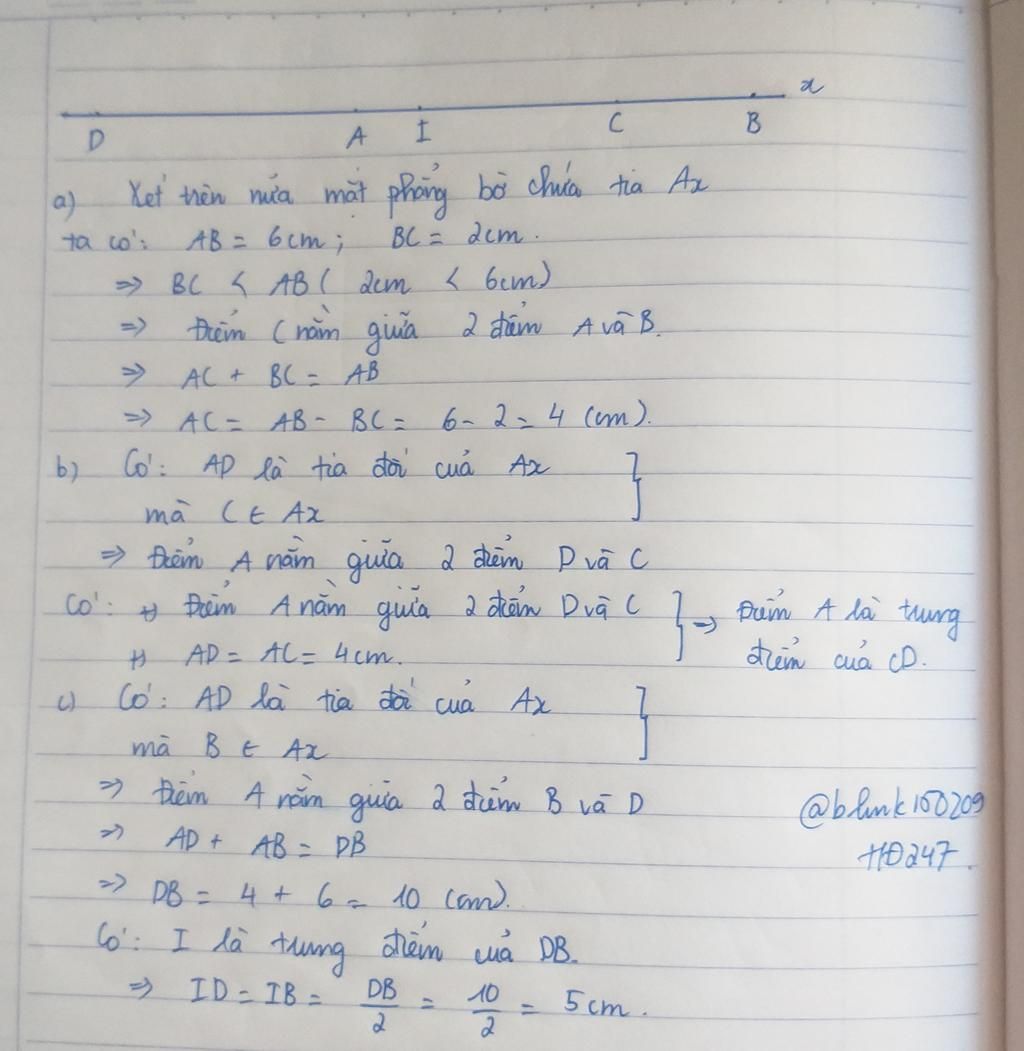 x
D A I C B
a) Xét trên nửa mặt phẳng bờ chứa tia Ax
ta có: AB = 6cm; BC = 2cm.
=> BC < AB ( 2cm < 6cm)
=> Điểm C nằm giữa 2 điểm A và B.
=> AC + BC = AB
=> AC = AB - BC = 6 - 2 = 4 (cm).
b) Có: AD là tia đối của Ax }
mà C ∈ Ax
=> Điểm A nằm giữa 2 điểm D và C
Có: +) Điểm A nằm giữa 2 điểm D và C } => Điểm A là trung
+) AD = AC = 4cm. điểm của CD.
c) Có: AD là tia đối của Ax }
mà B ∈ Ax
=> Điểm A nằm giữa 2 điểm B và D
@blink150209
=> AD + AB = DB
HĐ247.
=> DB = 4 + 6 = 10 (cm).
Có: I là trung điểm của DB.
=> ID = IB = DB/2 = 10/2 = 5cm.